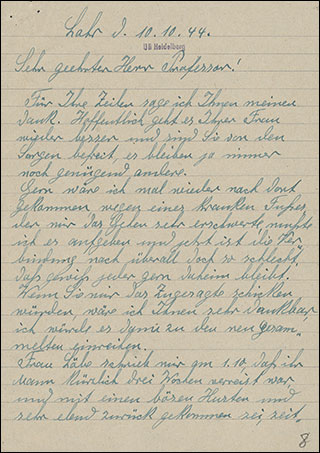 Lahr d. 10.10.44.
UB Heidelberg
Sehr geehrter Herr Professor!
Für Ihre Zeilen sage ich Ihnen meinen
Dank. Hoffentlich geht es Ihrer Frau
wieder besser und sind Sie von den
Sorgen befreit, es bleiben ja immer
noch genügend andere.
Gern wäre ich mal wieder nach dort
gekommen wegen eines kranken Fußes,
der mir das Gehen sehr erschwerte, mußte
ich es aufgeben und jetzt ist die Ver
bindung nach überall doch so schlecht,
daß gewiß jeder gern daheim bleibt.
Wenn Sie mir das Zugesagte schicken
würden, wäre ich Ihnen sehr dankbar,
ich würde es dann zu den neu Gesam„
melten einreihen.
Frau Läbe schrieb mir am 1.10. daß ihr
Mann kürzlich drei Wochen verreist war
und mit einen bösen Husten und
sehr elend zurück gekommen sei, zeit„
8